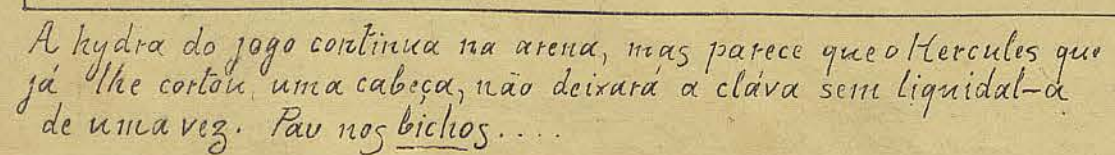 A hydra do jogo continua na arena, mas parece que o Hercules que
já lhe cortou uma cabeça, não deixará a cláva sem liquidal-a
de uma vez. Pau nos bichos....